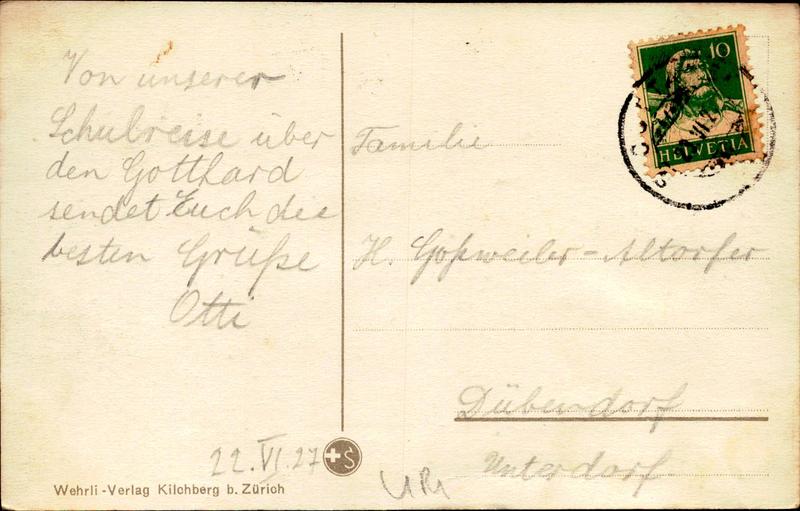 Von unserer
Schulreise über
den Gotthard
sendet Euch die
besten Grüße
Otti
22.VI.27
Wehrli-Verlag Kilchberg b. Zürich
10
HELVETIA
Familie
H. Goßweiler-Altorfer
Dübendorf
Unterdorf
URI